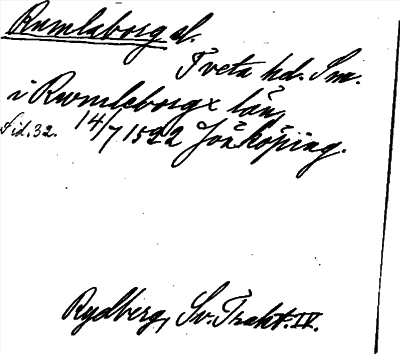 Rumlaborg sl.
Tveta hd. Sm.
i Rwmleborgx län,
Sid. 32. 14/7 1522 Jönköping.
Rydberg, Sv. Trakt. IV.